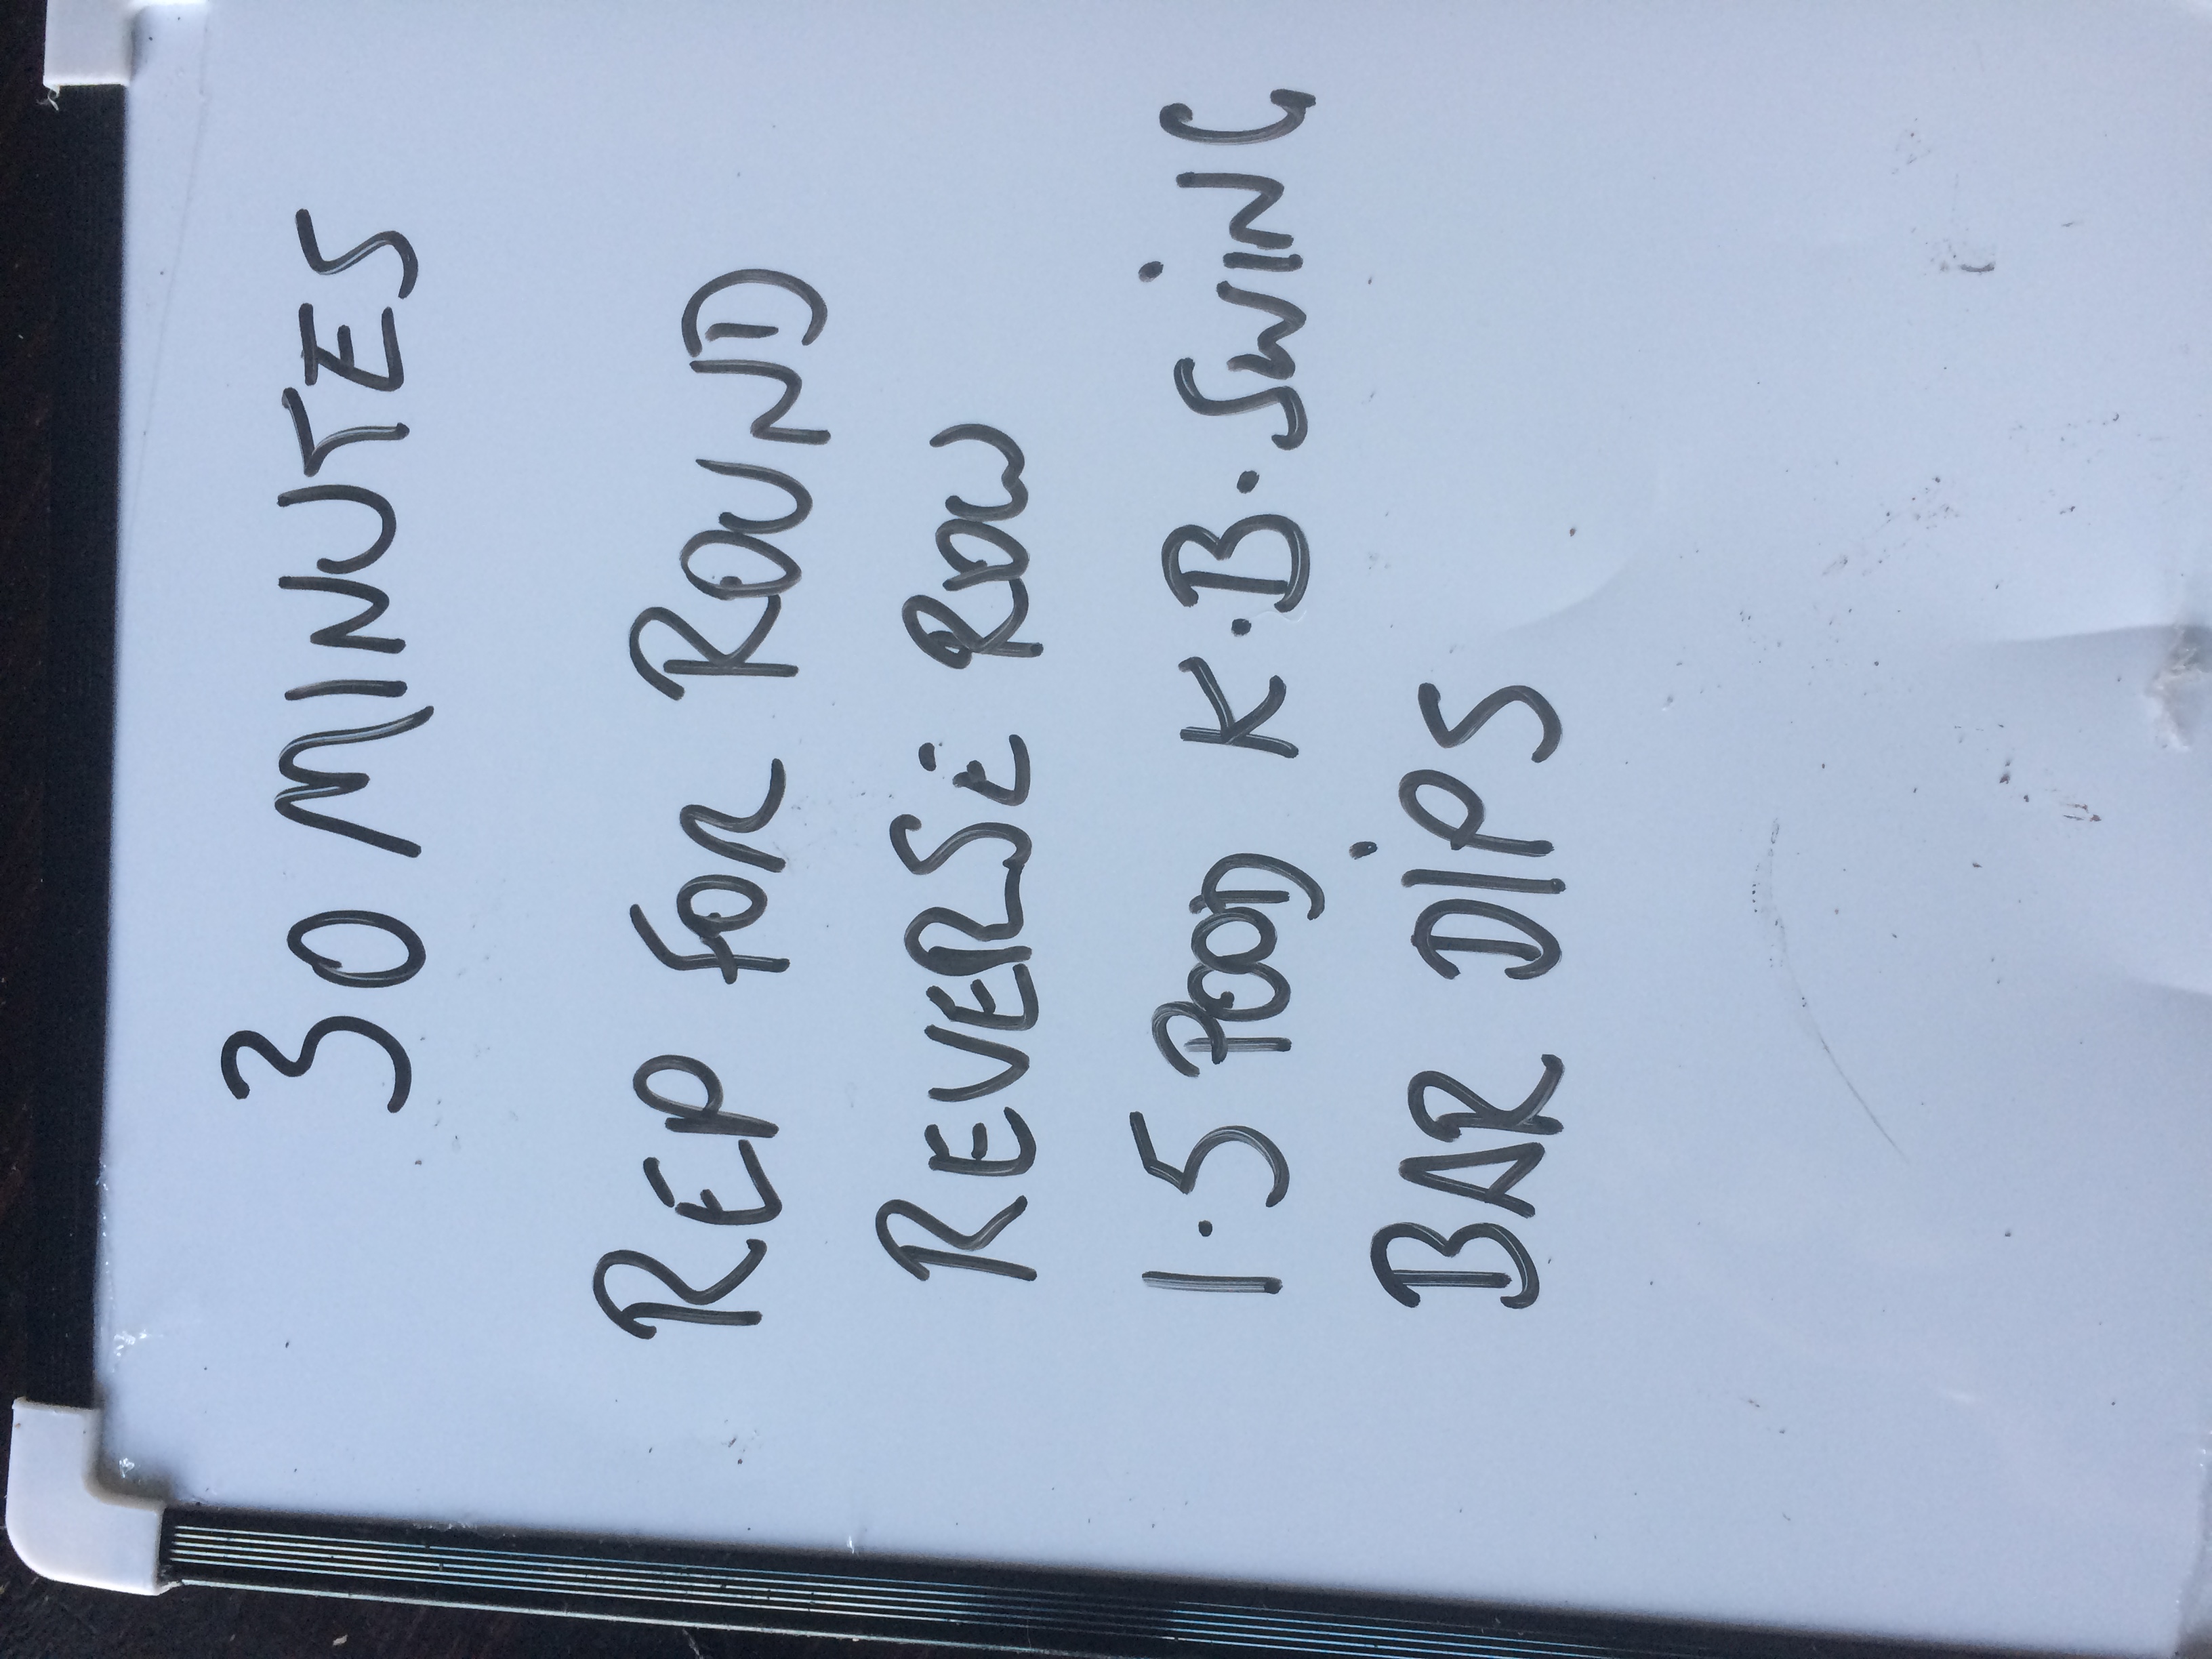 30 MINUTES
REP FOR ROUND
REVERSE ROW
1.5 POOD K.B. SWING
BAR DIPS